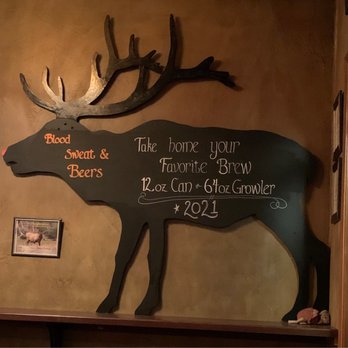 Blood
Sweat &
Beers
Take home your
Favorite Brew
12oz Can - 64oz Growler
* 2021